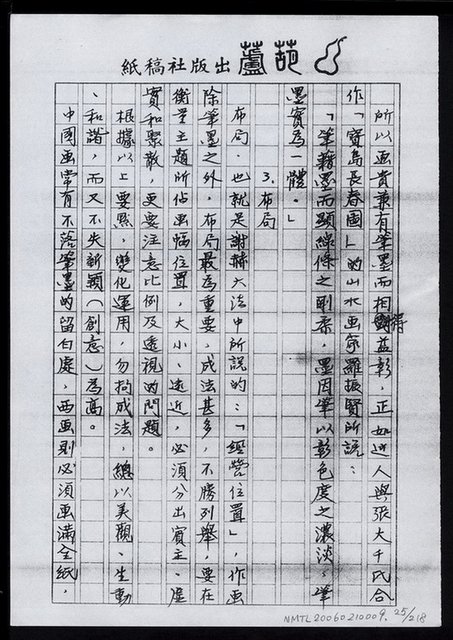 紙稿社版出蘆葫
所以画貴兼有筆墨而相得益彰，正如近人與張大千氏合
作「寶島長春圖」的山水画家羅振賢所說：
「筆藉墨而顯線條之剛柔，墨因筆以彰色度之濃淡，筆
墨實為一體。」
3.布局
布局，也就是謝赫六法中所說的：「經營位置」，作画
除筆墨之外，布局最為重要，成法甚多，不勝列舉，要在
衡量主題所佔画幅位置，大小、遠近，必須分出賓主、虛
實和聚散，更要注意比例及透視的問題。
根據以上要點，變化運用，勿拘成法，總以美觀、生動
、和諧，而又不失新穎（創意）為高。
中國画常有不落筆墨的留白處，西画則必須画滿全紙，
NMTL20060210009. 25/218